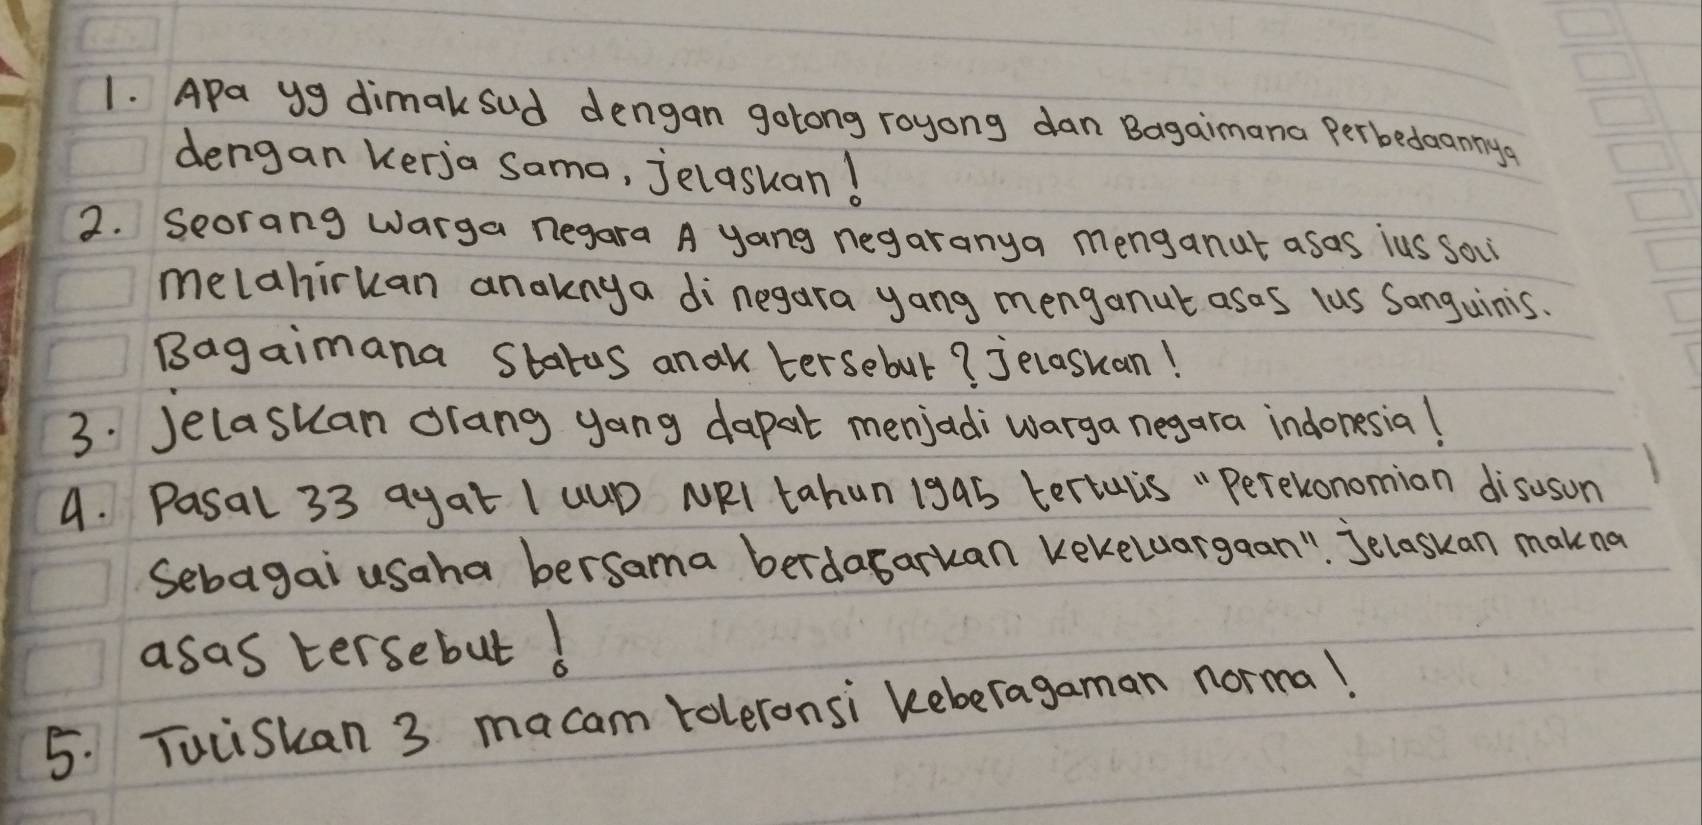 1. Apa yg dimaksud dengan gotong royong dan Bagaimana Perbedaannya
dengan kerja sama, jelaskan!
2. Seorang warga negara A yang negaranya menganut asas ius Soli
melahirkan anaknya di negara yang menganut asas ius Sanguinis.
Bagaimana Status anak tersebut? Jelaskan!
3. Jelaskan orang yang dapat menjadi warga negara indonesia!
4. Pasal 33 ayat 1 UUD NRI tahun 1945 tertulis "Perekonomian disusun
Sebagai usaha bersama berdasarkan kekeluargaan". Jelaskan makna
asas tersebut!
5. Tuliskan 3 macam toleransi keberagaman norma!